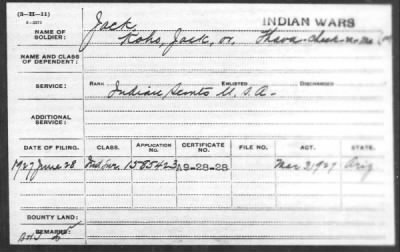 (3-H-11)
INDIAN WARS
NAME OF SOLDIER: Jack
Koho, Jack, or,
NAME AND CLASS OF DEPENDENT:
SERVICE: RANK ENLISTED DISCHARGED
Indian Scouts U.S.A.
ADDITIONAL SERVICE:
DATE OF FILING. CLASS. APPLICATION NO. CERTIFICATE NO. FILE NO. ACT. STATE.
1927 June 28 Ind Sur. 1585423 A9-28-28 Mar 3 1927 Ariz
BOUNTY LAND:
REMARKS: